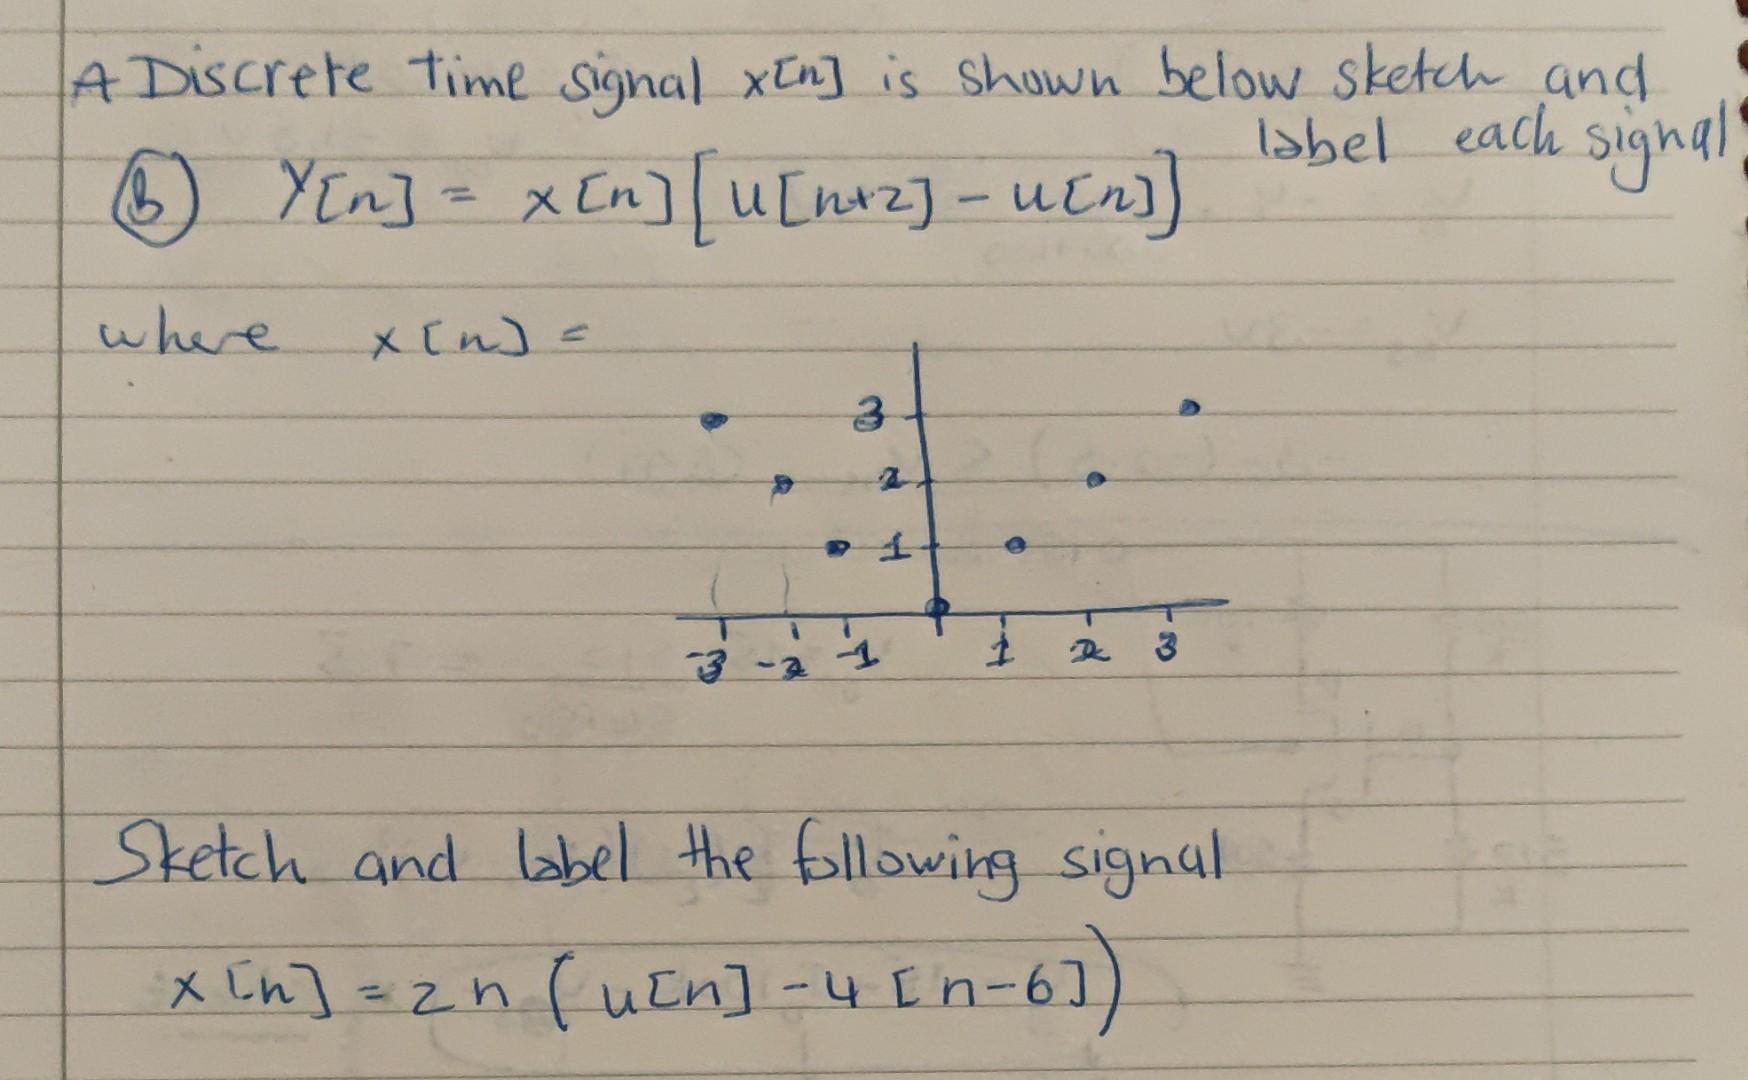 A Discrete time signal x[n] is shown below sketch and
label each signal
(B) Y[n] = x[n][u[n+2] - u[n]]
where x[n] =
3
2
1
-3 -2 -1 1 2 3
Sketch and label the following signal
x[n] = 2n (u[n] - 4[n-6])